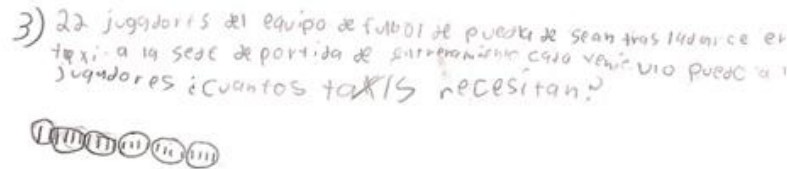 3) 22 jugadoris del equipo de futbol de puebla desean trasladarce en
taxi a la sede deportida de entrenamiento cada veniculo puede a
jugadores ¿cuantos taxis necesitan?